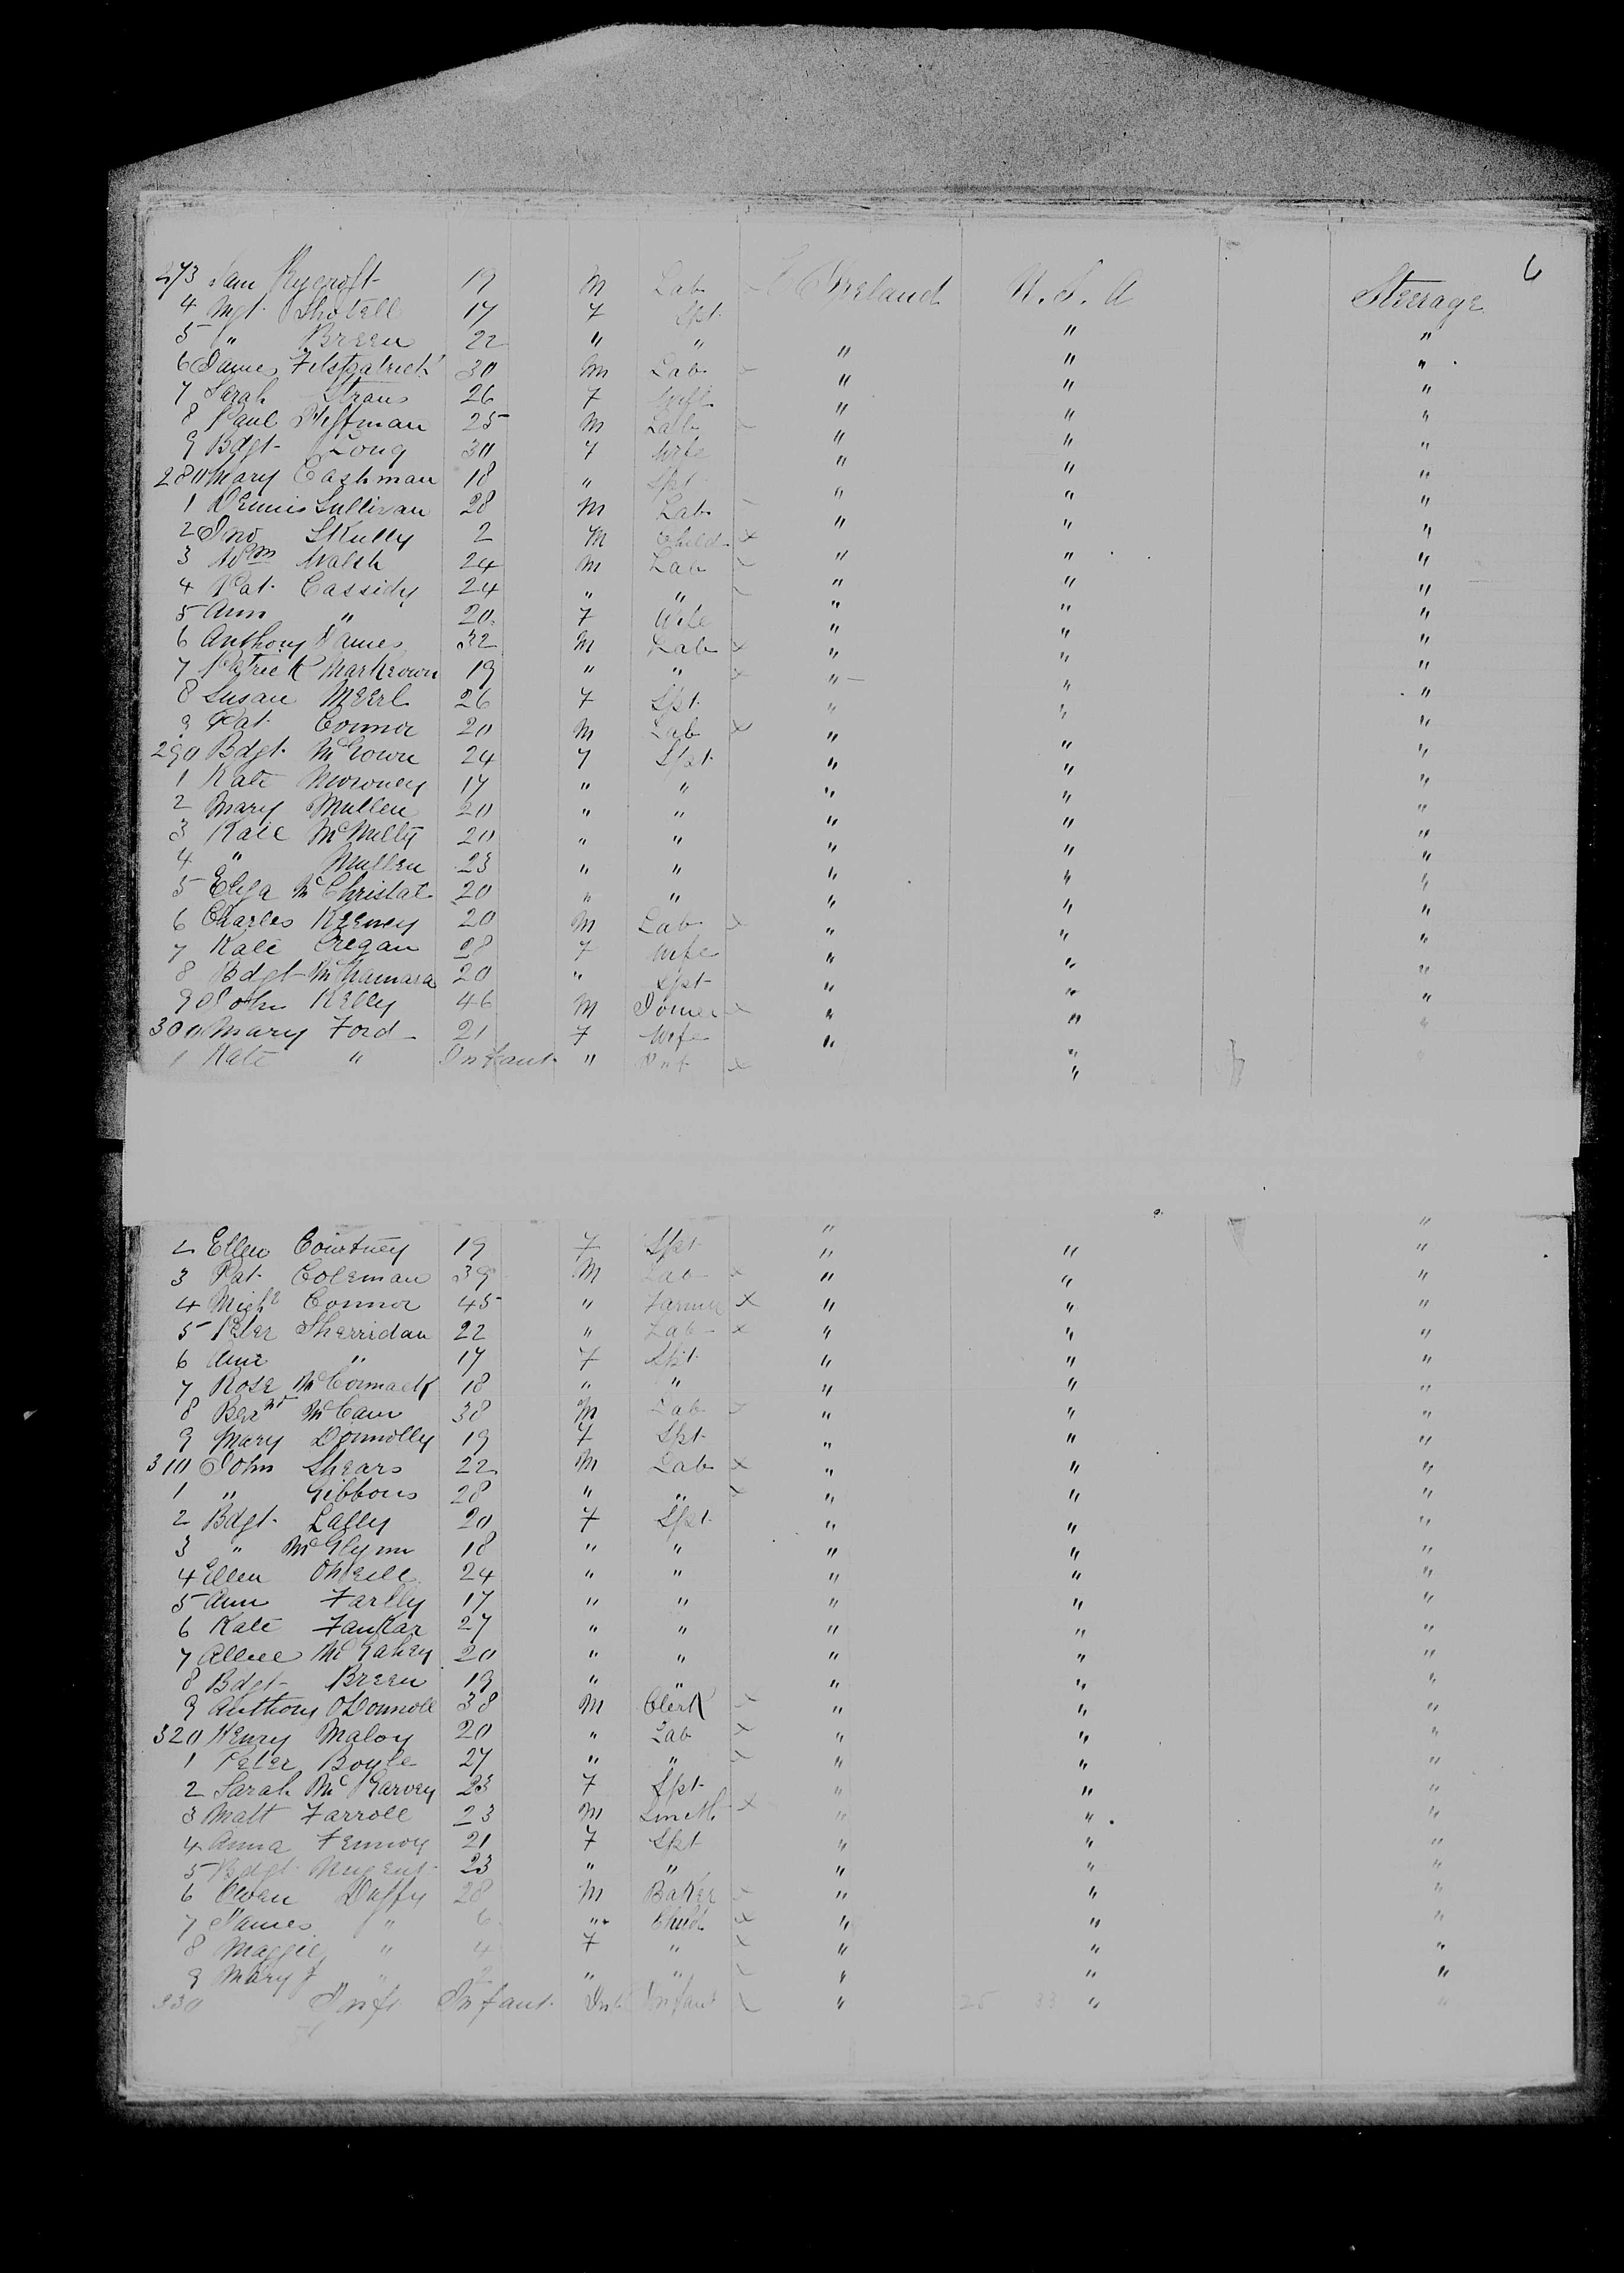 6
273 Sam Rycroft 19 M Lab Ireland U.S.A Steerage
4 Mgt. 17 F Spt " " "
5 " Breen 22 " " " " "
6 James Fitspatrick 30 M Lab " " "
7 Sarah Straus 26 F Wife " " "
8 Paul 25 M Lab " " "
9 Bdgt Long 30 F Wife " " "
280 Mary Cashman 18 " Spt " " "
1 Dennis Sullivan 28 M Lab " " "
2 Jno Skully 2 M Child x " " "
3 Wm Walsh 24 M Lab " " "
4 Pat. Cassidy 24 " " " " "
5 Ann " 20 F Wife " " "
6 Anthony James 32 M Lab x " " "
7 Patrick 19 " " x " " "
8 Susan 26 F Spt " " "
9 Pat. Connor 20 M Lab x " " "
290 Bdgt. McGown 24 F Spt " " "
1 Kate Moroney 17 " " " " "
2 Mary Mullen 20 " " " " "
3 Kate McNulty 20 " " " " "
4 " Mullen 23 " " " " "
5 Eliza McChristal 20 " " " " "
6 Charles Keeney 20 M Lab x " " "
7 Kate Cregan 28 F Wife " " "
8 Bdgt McNamara 20 " Spt " " "
9 John Kelly 46 M x " " "
300 Mary Ford 21 F Wife " " "
1 Kate " Infant " Inf x " "
2 Ellen Courtney 19 F Spt " " "
3 Pat. Coleman 39 M Lab x " " "
4 Michl Connor 45 " Farmer x " " "
5 Peter Sherridan 22 " Lab x " " "
6 Ann " 17 F Spt " " "
7 Rose McCormack 18 " " " " "
8 McCann 38 M Lab " " "
9 Mary Donnolly 19 F Spt " " "
310 John Shears 22 M Lab x " " "
1 " Gibbons 28 " " x " " "
2 Bdgt. Lally 20 F Spt " " "
3 " McGlynn 18 " " " " "
4 Ellen ONeill 24 " " " " "
5 Ann Farlly 17 " " " " "
6 Kate Fankar 27 " " " " "
7 McGahey 20 " " " " "
8 Bdgt Breen 19 " " " " "
9 Anthony ODonnoll 38 M Clerk x " " "
320 Henry Maloy 20 " Lab x " " "
1 Peter Boyle 27 " " x " " "
2 Sarah McGarvey 23 F Spt " " "
3 Matt Farroll 23 M Smith x " " "
4 Anna 21 F Spt " " "
5 Bdgt. Nugent 23 " " " " "
6 Owen Duffy 28 M Baker x " " "
7 James " 6 " Child x " " "
8 Maggie " 4 F " x " " "
9 Mary J " 2 " " " " "
330 Inft Infant Inft Infant " 25 33 " "